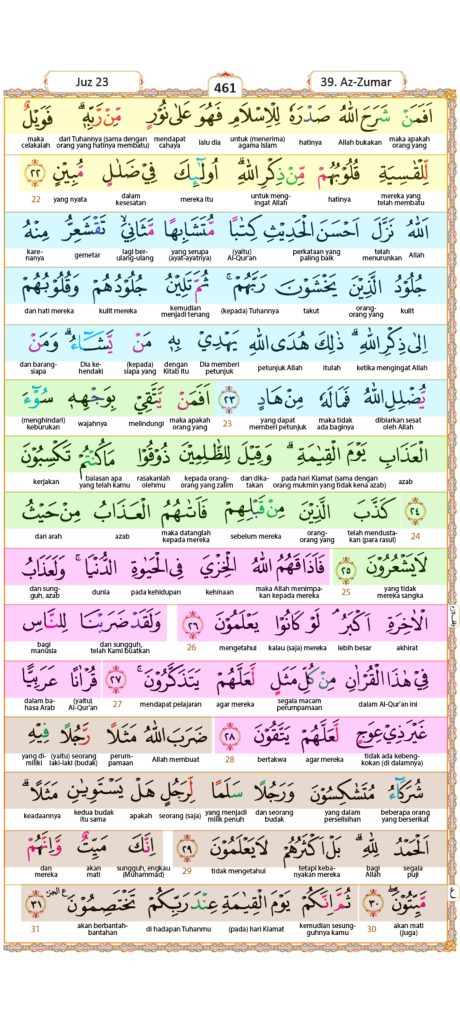 Juz 23
461
39. Az-Zumar
اَفَمَنْ شَرَحَ اللّٰهُ صَدْرَهٗ لِلْاِسْلَامِ فَهُوَ عَلٰى نُوْرٍ مِّنْ رَّبِّهٖ ۗ فَوَيْلٌ
maka apakah orang yang Allah bukakan hatinya untuk (menerima) agama Islam lalu dia mendapat cahaya dari Tuhannya (sama dengan orang yang hatinya membatu) maka celakalah
لِّلْقٰسِيَةِ قُلُوْبُهُمْ مِّنْ ذِكْرِ اللّٰهِ ۗ اُولٰۤىِٕكَ فِيْ ضَلٰلٍ مُّبِيْنٍ ٢٢
mereka yang telah membatu hatinya untuk meng-ingat Allah mereka itu dalam kesesatan yang nyata 22
اَللّٰهُ نَزَّلَ اَحْسَنَ الْحَدِيْثِ كِتٰبًا مُّتَشَابِهًا مَّثَانِيَۙ تَقْشَعِرُّ مِنْهُ
Allah telah menurunkan perkataan yang paling baik (yaitu) Al-Qur'an yang serupa (ayat-ayatnya) lagi ber-ulang-ulang gemetar kare-nanya
جُلُوْدُ الَّذِيْنَ يَخْشَوْنَ رَبَّهُمْ ۚ ثُمَّ تَلِيْنُ جُلُوْدُهُمْ وَقُلُوْبُهُمْ
kulit orang-orang yang takut (kepada) Tuhannya kemudian menjadi tenang kulit mereka dan hati mereka
اِلٰى ذِكْرِ اللّٰهِ ۗ ذٰلِكَ هُدَى اللّٰهِ يَهْدِيْ بِهٖ مَنْ يَّشَاۤءُ ۗ وَمَنْ
ketika mengingat Allah itulah petunjuk Allah Dia memberi petunjuk dengan Kitab itu (kepada) siapa yang Dia ke-hendaki dan barang-siapa
يُّضْلِلِ اللّٰهُ فَمَا لَهٗ مِنْ هَادٍ ٢٣ اَفَمَنْ يَّتَّقِيْ بِوَجْهِهٖ سُوْۤءَ
dibiarkan sesat oleh Allah maka tidak ada baginya yang dapat memberi petunjuk 23 maka apakah orang yang melindungi wajahnya (menghindari) keburukan
الْعَذَابِ يَوْمَ الْقِيٰمَةِ ۗ وَقِيْلَ لِلظّٰلِمِيْنَ ذُوْقُوْا مَا كُنْتُمْ تَكْسِبُوْنَ
azab pada hari Kiamat (sama dengan orang mukmin yang tidak kena azab) dan dika-takan kepada orang-orang yang zalim rasakanlah olehmu balasan apa yang telah kamu kerjakan
٢٤ كَذَّبَ الَّذِيْنَ مِنْ قَبْلِهِمْ فَاَتٰىهُمُ الْعَذَابُ مِنْ حَيْثُ
24 telah mendusta-kan (para rasul) orang-orang yang sebelum mereka maka datanglah kepada mereka azab dari arah
لَا يَشْعُرُوْنَ ٢٥ فَاَذَاقَهُمُ اللّٰهُ الْخِزْيَ فِى الْحَيٰوةِ الدُّنْيَا ۚ وَلَعَذَابُ
yang tidak mereka sangka 25 maka Allah menimpa-kan kepada mereka kehinaan pada kehidupan dunia dan sung-guh, azab
الْاٰخِرَةِ اَكْبَرُ ۘ لَوْ كَانُوْا يَعْلَمُوْنَ ٢٦ وَلَقَدْ ضَرَبْنَا لِلنَّاسِ
akhirat lebih besar kalau (saja) mereka mengetahui 26 dan sungguh, telah Kami buatkan bagi manusia
فِيْ هٰذَا الْقُرْاٰنِ مِنْ كُلِّ مَثَلٍ لَّعَلَّهُمْ يَتَذَكَّرُوْنَ ۚ ٢٧ قُرْاٰنًا عَرَبِيًّا
dalam Al-Qur'an ini segala macam perumpamaan agar mereka mendapat pelajaran 27 (yaitu) Al-Qur'an dalam ba-hasa Arab
غَيْرَ ذِيْ عِوَجٍ لَّعَلَّهُمْ يَتَّقُوْنَ ٢٨ ضَرَبَ اللّٰهُ مَثَلًا رَّجُلًا فِيْهِ
tidak ada kebeng-kokan (di dalamnya) agar mereka bertakwa 28 Allah membuat perum-pamaan (yaitu) seorang laki-laki (budak) yang di-miliki
شُرَكَاۤءُ مُتَشٰكِسُوْنَ وَرَجُلًا سَلَمًا لِّرَجُلٍ هَلْ يَسْتَوِيٰنِ مَثَلًا ۗ
beberapa orang yang berserikat yang dalam perselisihan dan seorang budak yang menjadi milik penuh seorang (saja) apakah kedua budak itu sama keadaannya
اَلْحَمْدُ لِلّٰهِ ۗ بَلْ اَكْثَرُهُمْ لَا يَعْلَمُوْنَ ٢٩ اِنَّكَ مَيِّتٌ وَّاِنَّهُمْ
segala puji bagi Allah tetapi keba-nyakan mereka tidak mengetahui 29 sungguh, engkau (Muhammad) akan mati dan mereka
مَّيِّتُوْنَ ۖ ٣٠ ثُمَّ اِنَّكُمْ يَوْمَ الْقِيٰمَةِ عِنْدَ رَبِّكُمْ تَخْتَصِمُوْنَ ٣١
akan mati (juga) 30 kemudian sesung-guhnya kamu (pada) hari Kiamat di hadapan Tuhanmu akan berbantah-bantahan 31